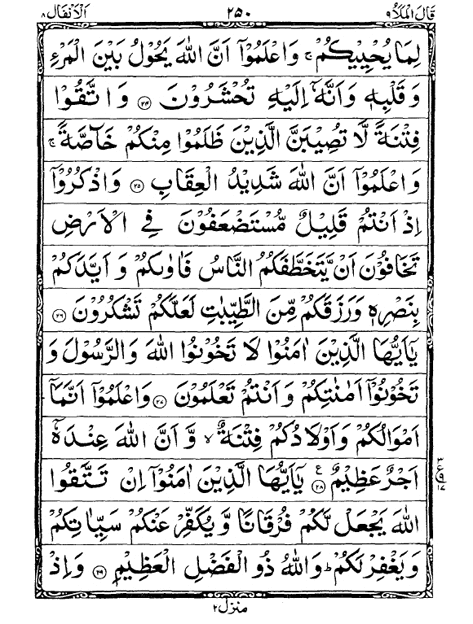 قَالَ الْمَلَاُ ۹ ۲۵۰ اَلْاَنْفَال ۸
لِمَا يُحْيِيْكُمْ ۚ وَاعْلَمُوْٓا اَنَّ اللّٰهَ يَحُوْلُ بَيْنَ الْمَرْءِ
وَقَلْبِهٖ وَاَنَّهٗٓ اِلَيْهِ تُحْشَرُوْنَ ﴿۲۴﴾ وَاتَّقُوْا
فِتْنَةً لَّا تُصِيْبَنَّ الَّذِيْنَ ظَلَمُوْا مِنْكُمْ خَآصَّةً ۚ
وَاعْلَمُوْٓا اَنَّ اللّٰهَ شَدِيْدُ الْعِقَابِ ﴿۲۵﴾ وَاذْكُرُوْٓا
اِذْ اَنْتُمْ قَلِيْلٌ مُّسْتَضْعَفُوْنَ فِي الْاَرْضِ
تَخَافُوْنَ اَنْ يَّتَخَطَّفَكُمُ النَّاسُ فَاٰوٰىكُمْ وَاَيَّدَكُمْ
بِنَصْرِهٖ وَرَزَقَكُمْ مِّنَ الطَّيِّبٰتِ لَعَلَّكُمْ تَشْكُرُوْنَ ﴿۲۶﴾
يٰٓاَيُّهَا الَّذِيْنَ اٰمَنُوْا لَا تَخُوْنُوا اللّٰهَ وَالرَّسُوْلَ وَ
تَخُوْنُوْٓا اَمٰنٰتِكُمْ وَاَنْتُمْ تَعْلَمُوْنَ ﴿۲۷﴾ وَاعْلَمُوْٓا اَنَّمَآ
اَمْوَالُكُمْ وَاَوْلَادُكُمْ فِتْنَةٌ ۙ وَّاَنَّ اللّٰهَ عِنْدَهٗٓ
اَجْرٌ عَظِيْمٌ ﴿۲۸﴾ يٰٓاَيُّهَا الَّذِيْنَ اٰمَنُوْٓا اِنْ تَتَّقُوا
اللّٰهَ يَجْعَلْ لَّكُمْ فُرْقَانًا وَّيُكَفِّرْ عَنْكُمْ سَيِّاٰتِكُمْ
وَيَغْفِرْ لَكُمْ ؕ وَاللّٰهُ ذُو الْفَضْلِ الْعَظِيْمِ ﴿۲۹﴾ وَاِذْ
منزل ۲